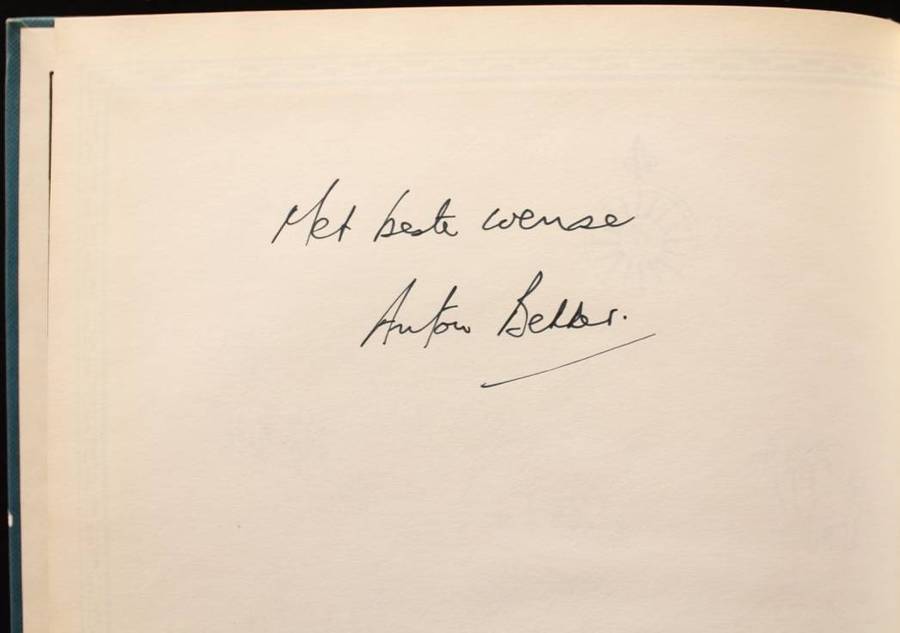 Met beste wense
Anton Bekker.